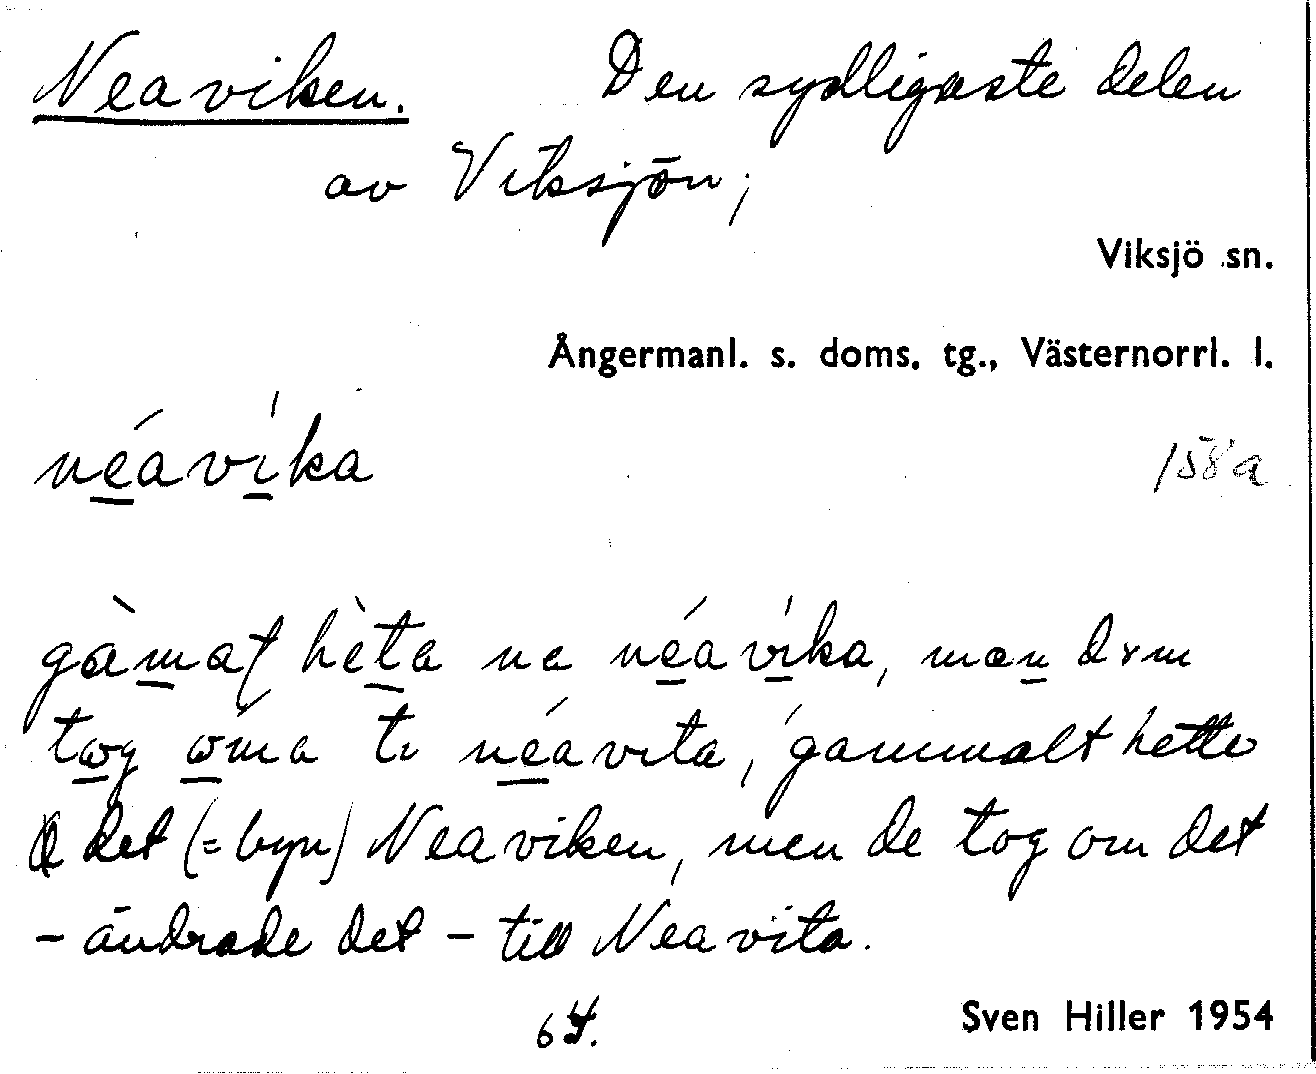 Neaviken. Den sydligaste delen
av Viksjön;
Viksjö sn.
Ångermanl. s. doms. tg., Västernorrl. l.
néavíka
158a
hèta na néavíka, man
tog oma ti néavita, gammalt hette
det (=byn) Neaviken, men de tog om det
– ändrade det – till Neavita.
Sven Hiller 1954